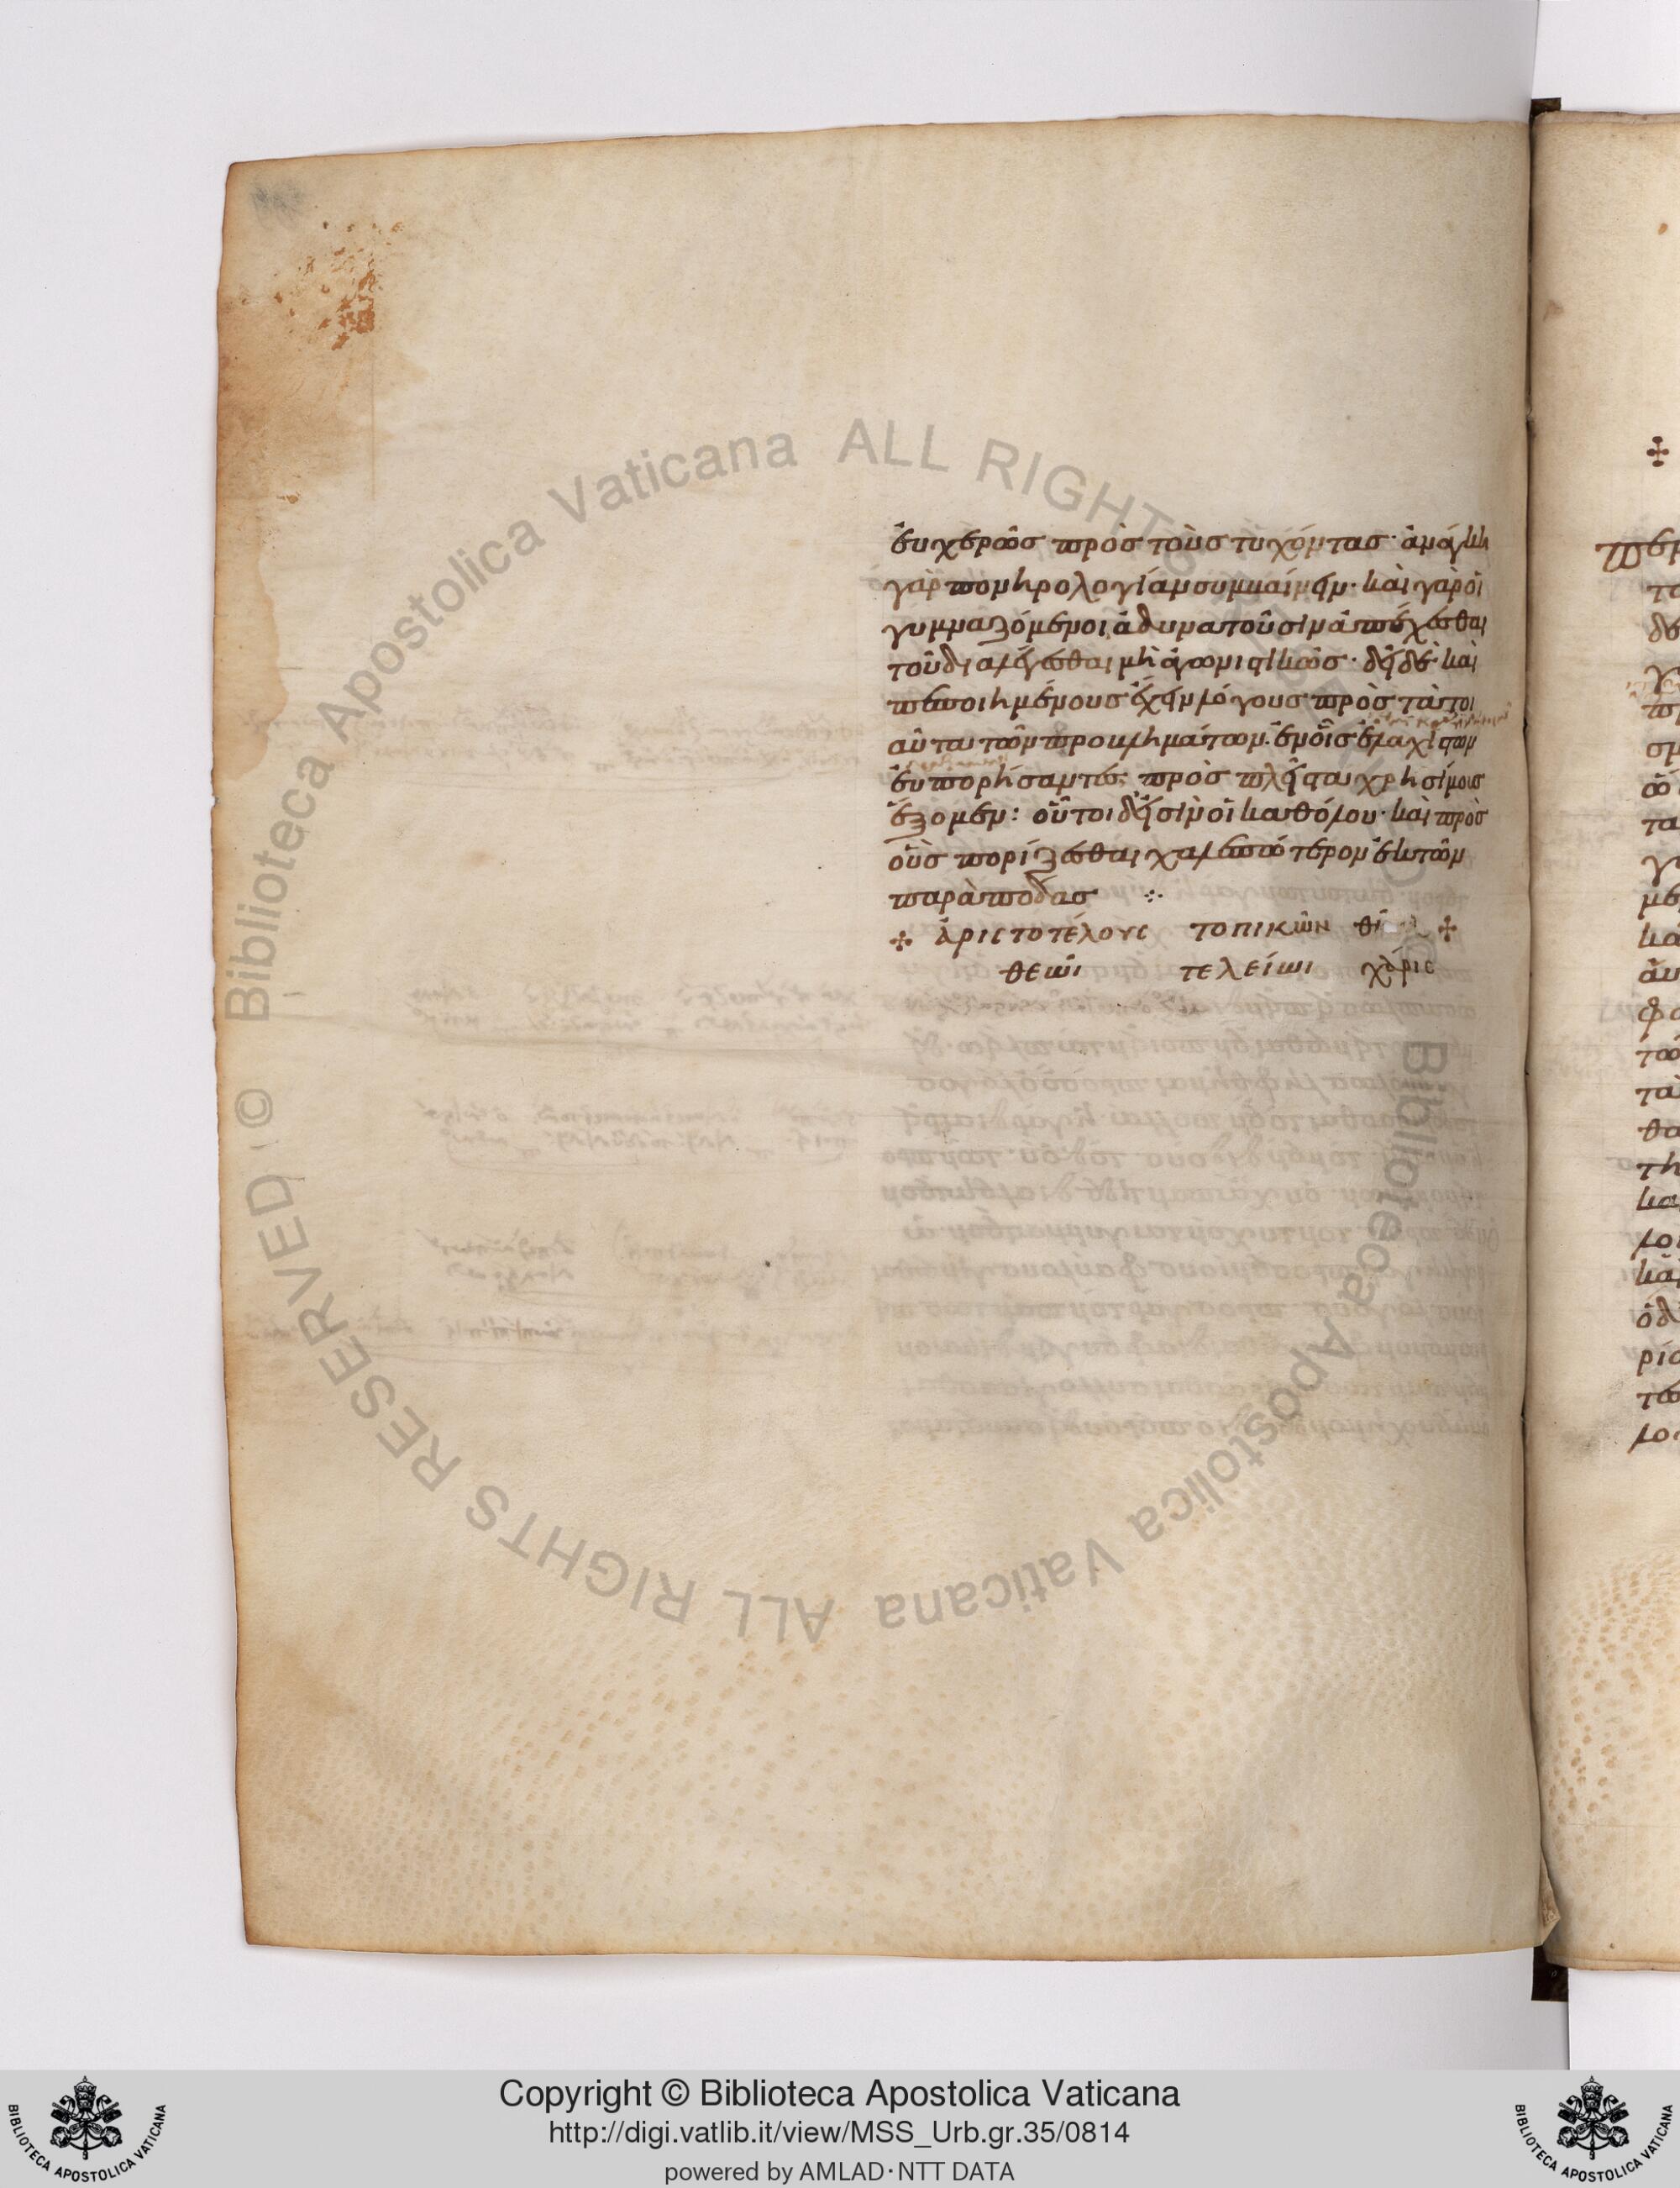 εὐχερῶς πρὸς τοὺς τυχόντας· ἀνάγκη
γὰρ πονηρολογίαν συμβαίνειν· καὶ γὰρ οἱ
γυμναζόμενοι ἀδυνατοῦσιν ἀπέχεσθαι
τοῦ διαλέγεσθαι μὴ ἀγωνιστικῶς· δεῖ δὲ καὶ
πεποιημένους ἔχειν λόγους πρὸς τὰ τοι
αῦτα τῶν προβλημάτων. ἐν οἷς ἐλαχίστων
εὐπορήσαντες πρὸς πλεῖστα χρησίμους
ἕξομεν: οὗτοι δ' εἰσὶν οἱ καθόλου· καὶ πρὸς
οὓς πορίζεσθαι χαλεπώτερον ἐκ τῶν
παρὰ πόδας
✣ ἀριστοτέλους τοπικῶν ✣
θεῶι τελείωι χάρις
ALL RIGHTS RESERVED © Biblioteca Apostolica Vaticana ALL RIGHTS RESERVED © Biblioteca Apostolica Vaticana
Copyright © Biblioteca Apostolica Vaticana
http://digi.vatlib.it/view/MSS_Urb.gr.35/0814
powered by AMLAD·NTT DATA
BIBLIOTECA APOSTOLICA VATICANA
BIBLIOTECA APOSTOLICA VATICANA